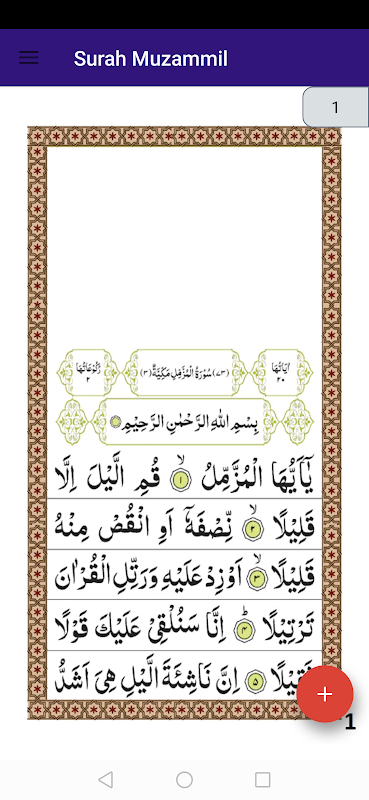 Surah Muzammil
1
اٰیَاتُهَا ٢٠ (٧٣) سُوْرَةُ الْمُزَّمِّلِ مَكِّیَّةٌ (٣) رُكُوْعَاتُهَا ٢
بِسْمِ اللهِ الرَّحْمٰنِ الرَّحِیْمِ
یٰۤاَیُّهَا الْمُزَّمِّلُ ۙ ١ قُمِ الَّیْلَ اِلَّا
قَلِیْلًا ۙ ٢ نِّصْفَهٗۤ اَوِ انْقُصْ مِنْهُ
قَلِیْلًا ۙ ٣ اَوْ زِدْ عَلَیْهِ وَ رَتِّلِ الْقُرْاٰنَ
تَرْتِیْلًا ؕ ۴ اِنَّا سَنُلْقِیْ عَلَیْكَ قَوْلًا
ثَقِیْلًا ۵ اِنَّ نَاشِئَةَ الَّیْلِ هِیَ اَشَدُّ
+
1